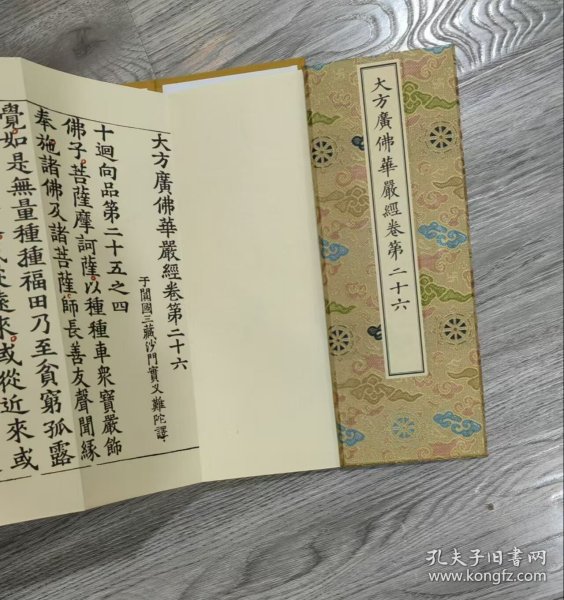 大方廣佛華嚴經卷第二十六
大方廣佛華嚴經卷第二十六
于闐國三藏沙門實叉難陀譯
十迴向品第二十五之四
佛子菩薩摩訶薩以種種車眾寶嚴飾
奉施諸佛及諸菩薩師長善友聲聞緣
覺如是無量種種福田乃至貧窮孤露
來或從近來或
孔夫子旧书网
www.kongfz.com